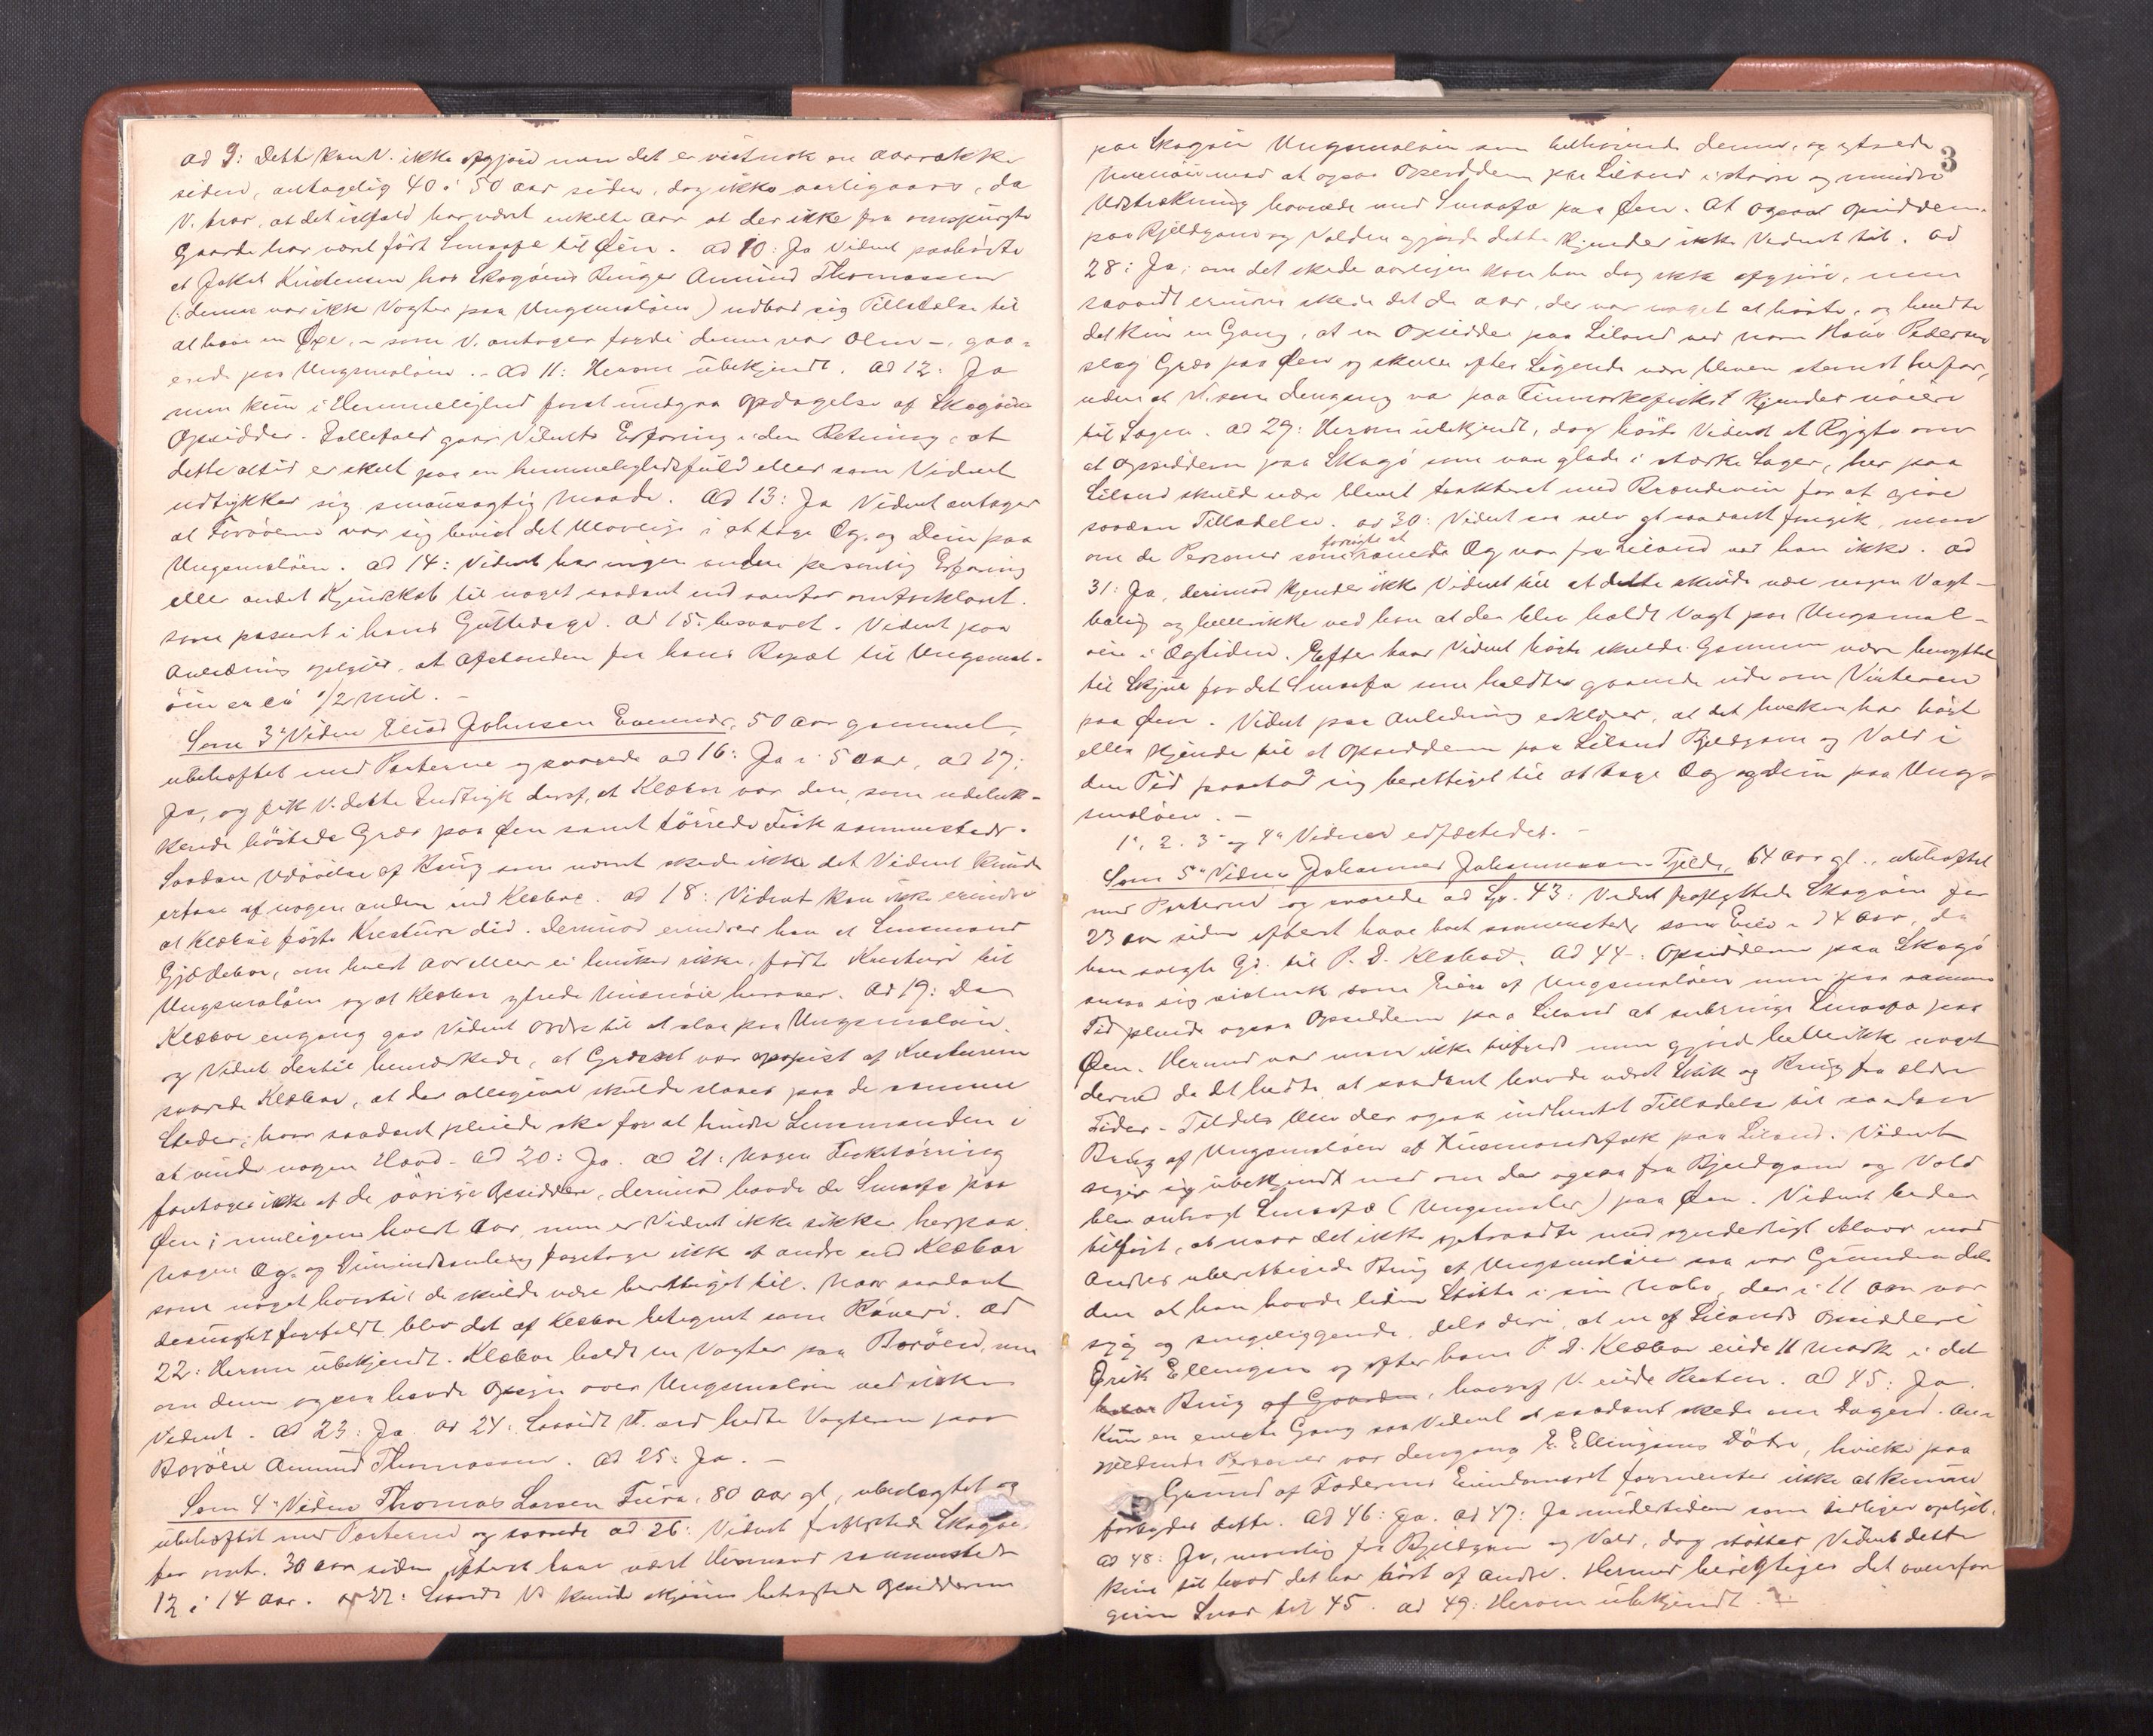 ad 9: Dette kan V. ikke opgjøre men det er vistnok en Aarrække
siden, antagelig 40 à 50 Aar siden, dog ikke aarligaars, da
V. tror, at det ialfald har været enkelte Aar at der ikke fra omspurgte
Gaarde har været ført Smaafæ til Øen. ad 10: Ja Vidnet paahørte
at Jakob Kristensen hos Skogøens Bruger Amund Thomassen
(: denne var ikke Vogter paa Ungsmaløen) udbad sig Tilladelse til
at have en Oxe, - som V. antager fordi denne var Olm -, gaa-
ende paa Ungsmaløen. - Ad 11: Herom ubekjendt. Ad 12: Ja
men kun i Hemmelighed forat undgaa Opdagelse af Skogøens
Opsidder. Iallefald gaar Vidnets Erfaring i den Retning, at
dette altid er skeet paa en hemmelighedsfuld eller som Vidnet
udtrykker sig smausagtig Maade. Ad 13: Ja Vidnet antager
at Førøerne var sig bevist det Ulovlige i at tage Æg og Dun paa
Ungsmaløen. ad 14: Vidnet har ingen anden personlig Erfaring
eller andet Kjendskab til noget saadant end ovenfor omforklaret.
som passeret i hans Guttedage. Ad 15: besvaret. Vidnet paa
Anledning opgiver, at Afstanden fra hans Bopæl til Ungsmal-
øen er ca 1/2 Mil. -
Som 3die Vidne Elias Johnsen Evenmo, 50 Aar gammel,
ubeheftet med Parterne og svarede ad 16: Ja i 5 Aar, ad 17:
Ja, og fik V. dette Indtryk deraf, at Klæboe var den, som udeluk-
kende høstede Græs paa Øen samt tørrede Fisk sammesteds.
Saadan Udøvelse af Brug som nævnt skede ikke det Vidnet kunde
erfare af nogen anden end Klæboe. ad 18: Vidnet kan ikke erindre
at Klæboe førte Kreature did. Derimod erindrer han at Lensmand
Gjæddeboe, om hvert Aar eller ei huskes ikke, førte Kreature til
Ungsmaløen og at Klæboe ytrede Misnøie herover. Ad 19: Da
Klæboe engang gav Vidnet Ordre til at slaa paa Ungsmaløen.
og Vidnet dertil bemærkede, at Græsset var opspist af Kreaturene
svarede Klæboe, at der alligevel skulde slaaes paa de samme
Steder, hvor saadant pleiede ske for at hindre Lensmanden i
at vinde nogen Hævd. Ad 20: Ja. ad 21: Nogen Fisketørring
foretoges ikke af de øvrige Opsiddere, derimod havde de Smaafæ paa
Øen; muligens hvert Aar, men er Vidnet ikke sikker herpaa.
Nogen Æg- og Duunindsamling foretoges ikke af andre end Klæboe
som noget hvortil de skulde være berettiget til. Naar saadant
desuagtet forefaldt blev det af Klæboe betegnet som Røveri. ad
22: Herom ubekjendt. Klæboe holdt en Vogter paa Borøen, men
om denne ogsaa havde Opsyn over Ungsmaløen ved ikke
Vidnet. ad 23: Ja. ad 24: Saavidt V. ved hedte Vogteren paa
Borøen Amund Thomassen. ad 25: Ja. -
Som 4de Vidne Thomas Larsen Furu, 80 Aar gl., ubeslægtet og
ubeheftet med Parterne og svarede ad 26: Vidnet fraflyttede Skogøen
for omtr. 30 Aar siden efterat have vært Husmand sammesteds
12 à 14 Aar. ad 27: Saavidt V. kunde skjønne betragtede Opsidderne
3
paa Skogøen Ungsmaløen som tilhørende denne, og ytrede
Misnøie med at ogsaa Opsidderne paa Liland i større og mindre
Udstrækning havnede med Smaafæ paa Øen. At ogsaa Opsidderne
paa Kjeldgam og Valden gjorde dette kjender ikke Vidnet til. ad
28: Ja; om det skede aarligen kan han dog ikke opgjøre, men
saavidt erindres skede det de Aar, der var noget at høste, og hendte
det kun en Gang, at en Opsidder paa Liland ved Navn Hans Pedersen
slog Græs paa Øen og skulde efter Sigende være bleven stevnt herfor,
uden at V. som dengang var paa Finmarksfisket kjender nøiere
til Sagen. ad 29: Herom ubekjendt, dog hørte Vidnet et Rygte om
at Opsidderne paa Skogø som var glade i stærke Sager, her paa
Liland skulde være blevet trakteret med Brændevin for at give
saadan Tilladelse. ad 30: Vidnet saa selv at saadant foregik, men
om de Personer som forsøgte at ranede Æg var fra Liland ved han ikke. ad
31: Ja, derimod kjender ikke Vidnet til at dette skulde være nogen Vagt-
bolig og heller ikke ved han at der blev holdt Vagt paa Ungsmal-
øen i Ægtiden. Efter hvad Vidnet hørte skulde Gammen være benyttet
til Skjul for det Smaafæ som holdtes gaaende ude om Vinteren
paa Øen. Vidnet paa Anledning erklærer, at det hverken har hørt
eller kjender til at Opsidderne paa Liland Kjeldgam og Vald i
den Tid paastod sig berettiget til at tage Æg og Dun paa Ung-
smaløen. -
1ste, 2. 3die og 4de Vidner edfæstedes. -
Som 5te Vidne Johannes Johannessen Fjelde, 64 Aar gl., ubeheftet
med Parterne og svarede ad Sp. 43: Vidnet fraflyttede Skogøen for
23 Aar siden efterat have boet sammesteds som Eier i 24 Aar, da
han solgte Gd. til P. D. Klæboe. Ad 44: Opsidderne paa Skogø
ansaa sig vistnok som Eiere af Ungsmaløen men paa samme
Tid pleiede ogsaa Opsidderne paa Liland at indbringe Smaafæ paa
Øen. Hermed var man ikke tilfreds men gjorde heller ikke noget
derved da det hedte at saadant havde været Skik og Brug fra ældre
Tider. - Tildels blev der ogsaa indhentet Tilladelse til saadan
Brug af Ungsmaløen af Husmandsfolk paa Liland. Vidnet
siger sig ubekjendt med om der ogsaa fra Kjeldgam og Vald
blev anbragt Smaafæ (Ungsmaler) paa Øen. Vidnet beder
tilføiet, at naar det ikke optraadte med synderligt Alvor mod
Andres uberettigede Brug af Ungsmaløen saa var Grunden dels
den at han havde liden Støtte i sin Nabo, der i 11 Aar var
syg og sengeliggende, dels deri, at en af Lilands Opsiddere
Erik Ellingsen og efter ham P. D. Klæboe eiede 11 Mark i det
Brug af Gaarden, hvoraf V. eiede Resten. ad 45: Ja.
Kun en eneste Gang saa Vidnet at saadant skede om Dagen. An-
gjældende Personer var dengang E. Ellingsens Døtre, hvilke paa
Grund af Faderens Eiendomsret formentes ikke at kunne
forbydes dette. Ad 46: Ja. ad 47: Ja undertiden som tidligere oplyst.
ad 48: Ja, navnlig fra Kjeldgam og Vald, dog støtter Vidnet dette
kun til hvad det har hørt af Andre. Hermed berigtiges det ovenfor
givne Svar til 45. ad 49: Herom ubekjendt. -